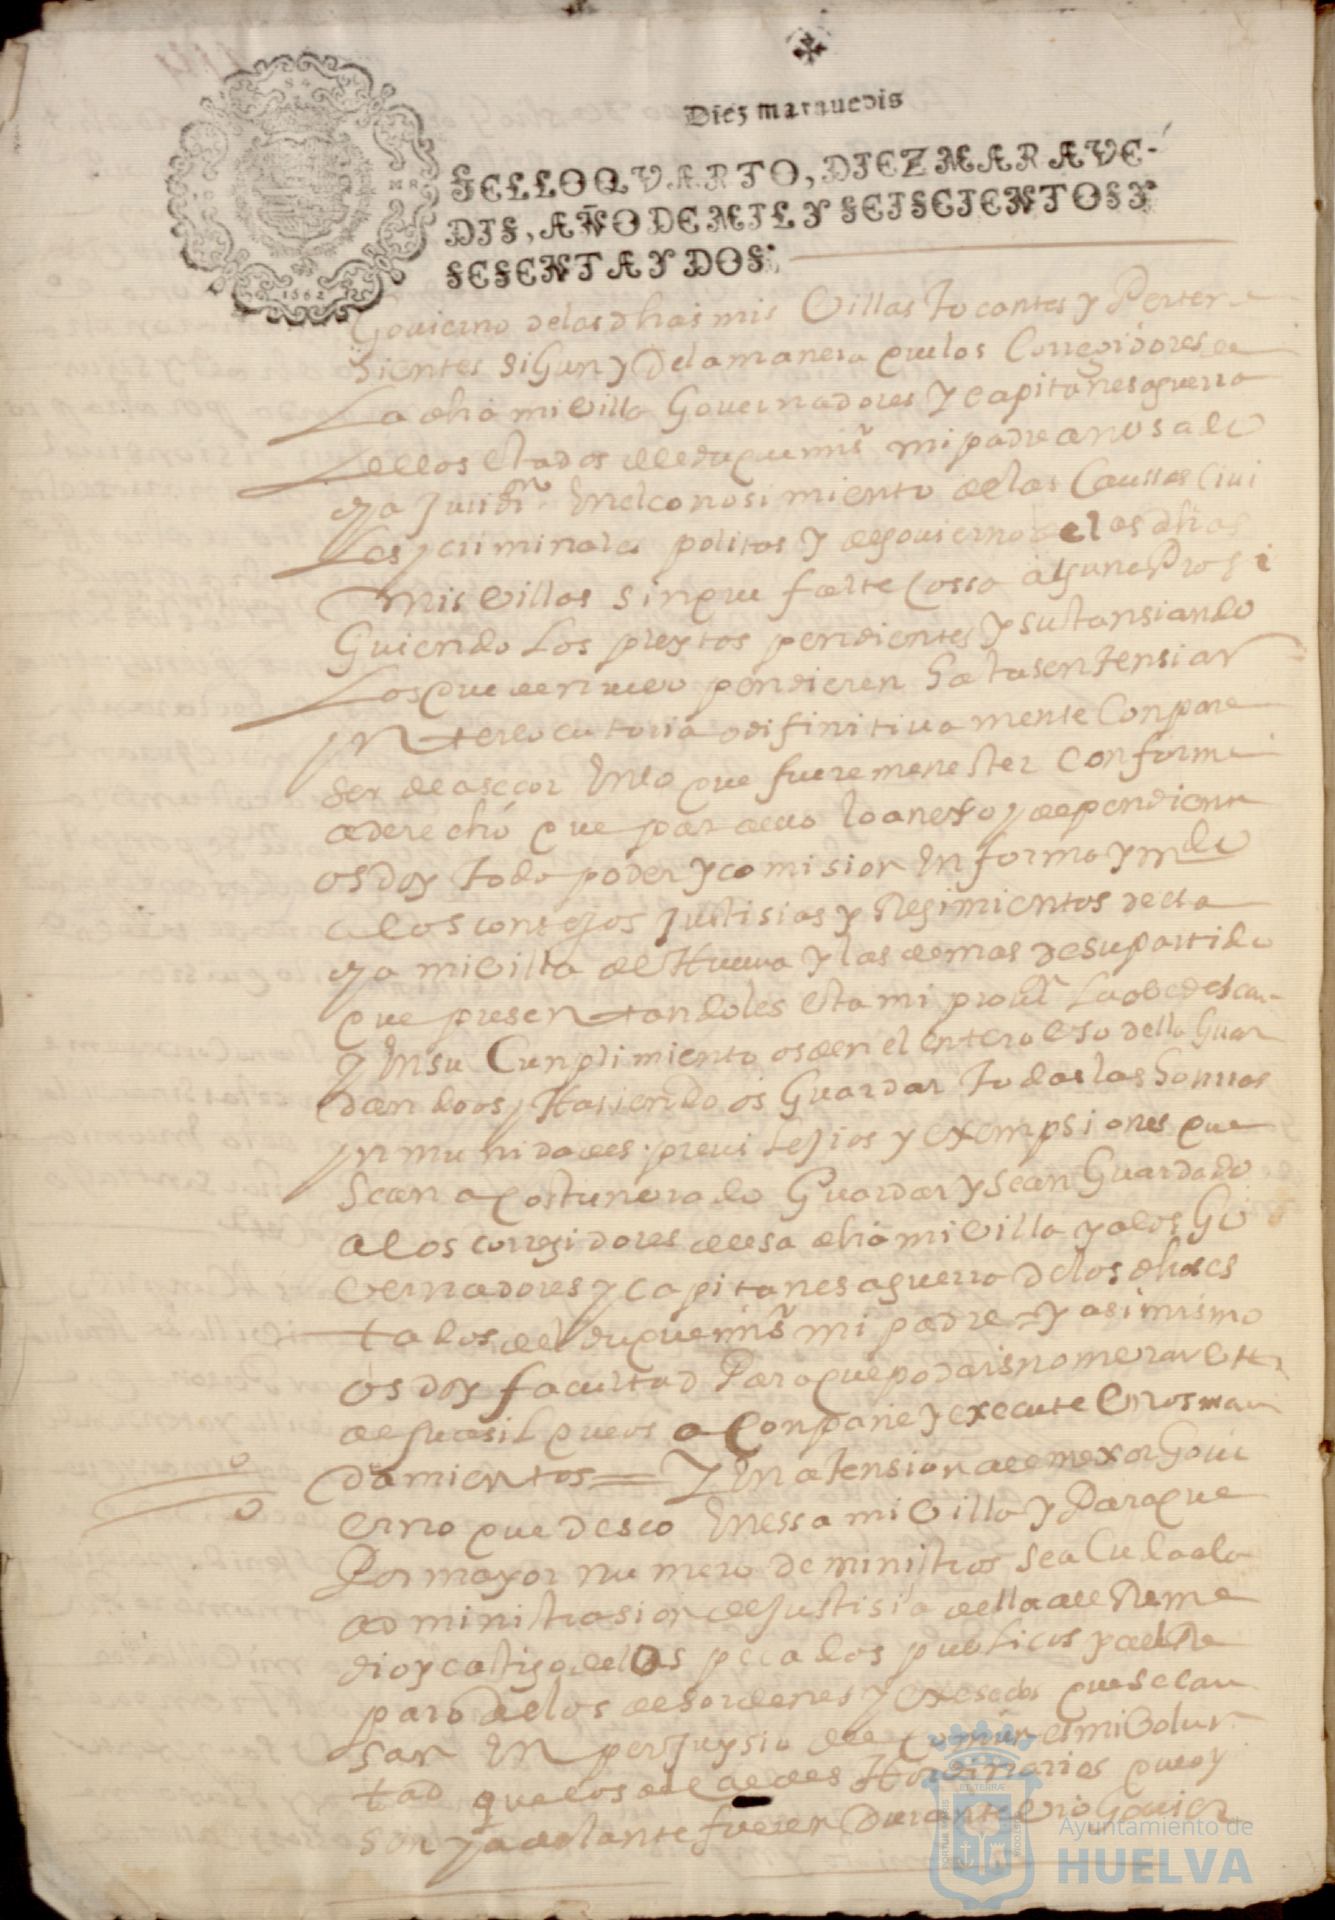 Diez maravedis
SELLO QVARTO, DIEZ MARAVE-
DIS, AÑO DE MIL Y SEISCIENTOS Y
SESENTA Y DOS.
1662
Govierno de las dhas mis Villas tocantes y Perte
sientes sigun y de la manera que los Corregidores de
La dha mi Villa Governadores y capitanes a guerra
de los estados del duque mi sr mi padre an usado
en el conosimiento de las Caussas Civi
Les y criminales politos y de govierno de las dhas
mis Villas sin que falte Cossa alguna Prosi
Guiendo Los pleytos pendientes y sustansiando
Los que de nuevo pendieren hasta sentensiar
ynterlocutoria o difinitivamente Con pare
ser de asesor en lo que fuere menester conforme
a derecho que para ello lo anexo y dependiente
os doy todo poder y comision en forma y mdo
a los consejos Justisias y Regimientos de esta
mi Villa de Huelva y las demas de su partido
que presentandoles esta mi La obedescan
y en su Cunplimiento os den el entero Uso della Guar
dandoos y Hasiendoos Guardar todas las honrras
ynmunidades previlejios y exempsiones que
sean acostunbrado Guardar y sean Guardado
a los corregidores de esa dha mi Villa y a los Go
vernadores y Capitanes a guerra de los dhos es
tados del duque mi sr mi padre = y asimismo
os doy facultad Para que podais nomerar
alguasil que os aconpañe y execute Vuos man
damientos = Y en atension del mexor Govi
erno que deseo en essa mi Villa y Para que
Por mayor numero de ministros sea
administrasion de Justisia della el Reme
dio y castigo de los pecados publicos y el Re
paro de los desordenes y exsesos que se cau
san en perjuysio del comun es mi Volun
tad que los alcaldes Hordinarios que oy
son y adelante fueren Durante Vro Govier
Ayuntamiento de
HUELVA